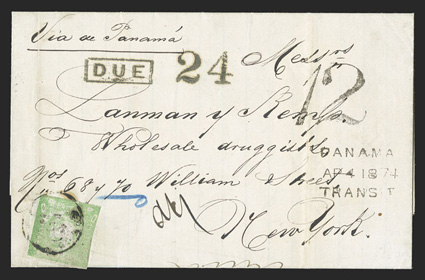 Via de Panamá
DUE 24
Messrs
12
Lanman y Kemp.
Wholesale druggists
Nos 68 y 70 William Street
New York.
PANAMA
AP 4 1874
TRANSIT